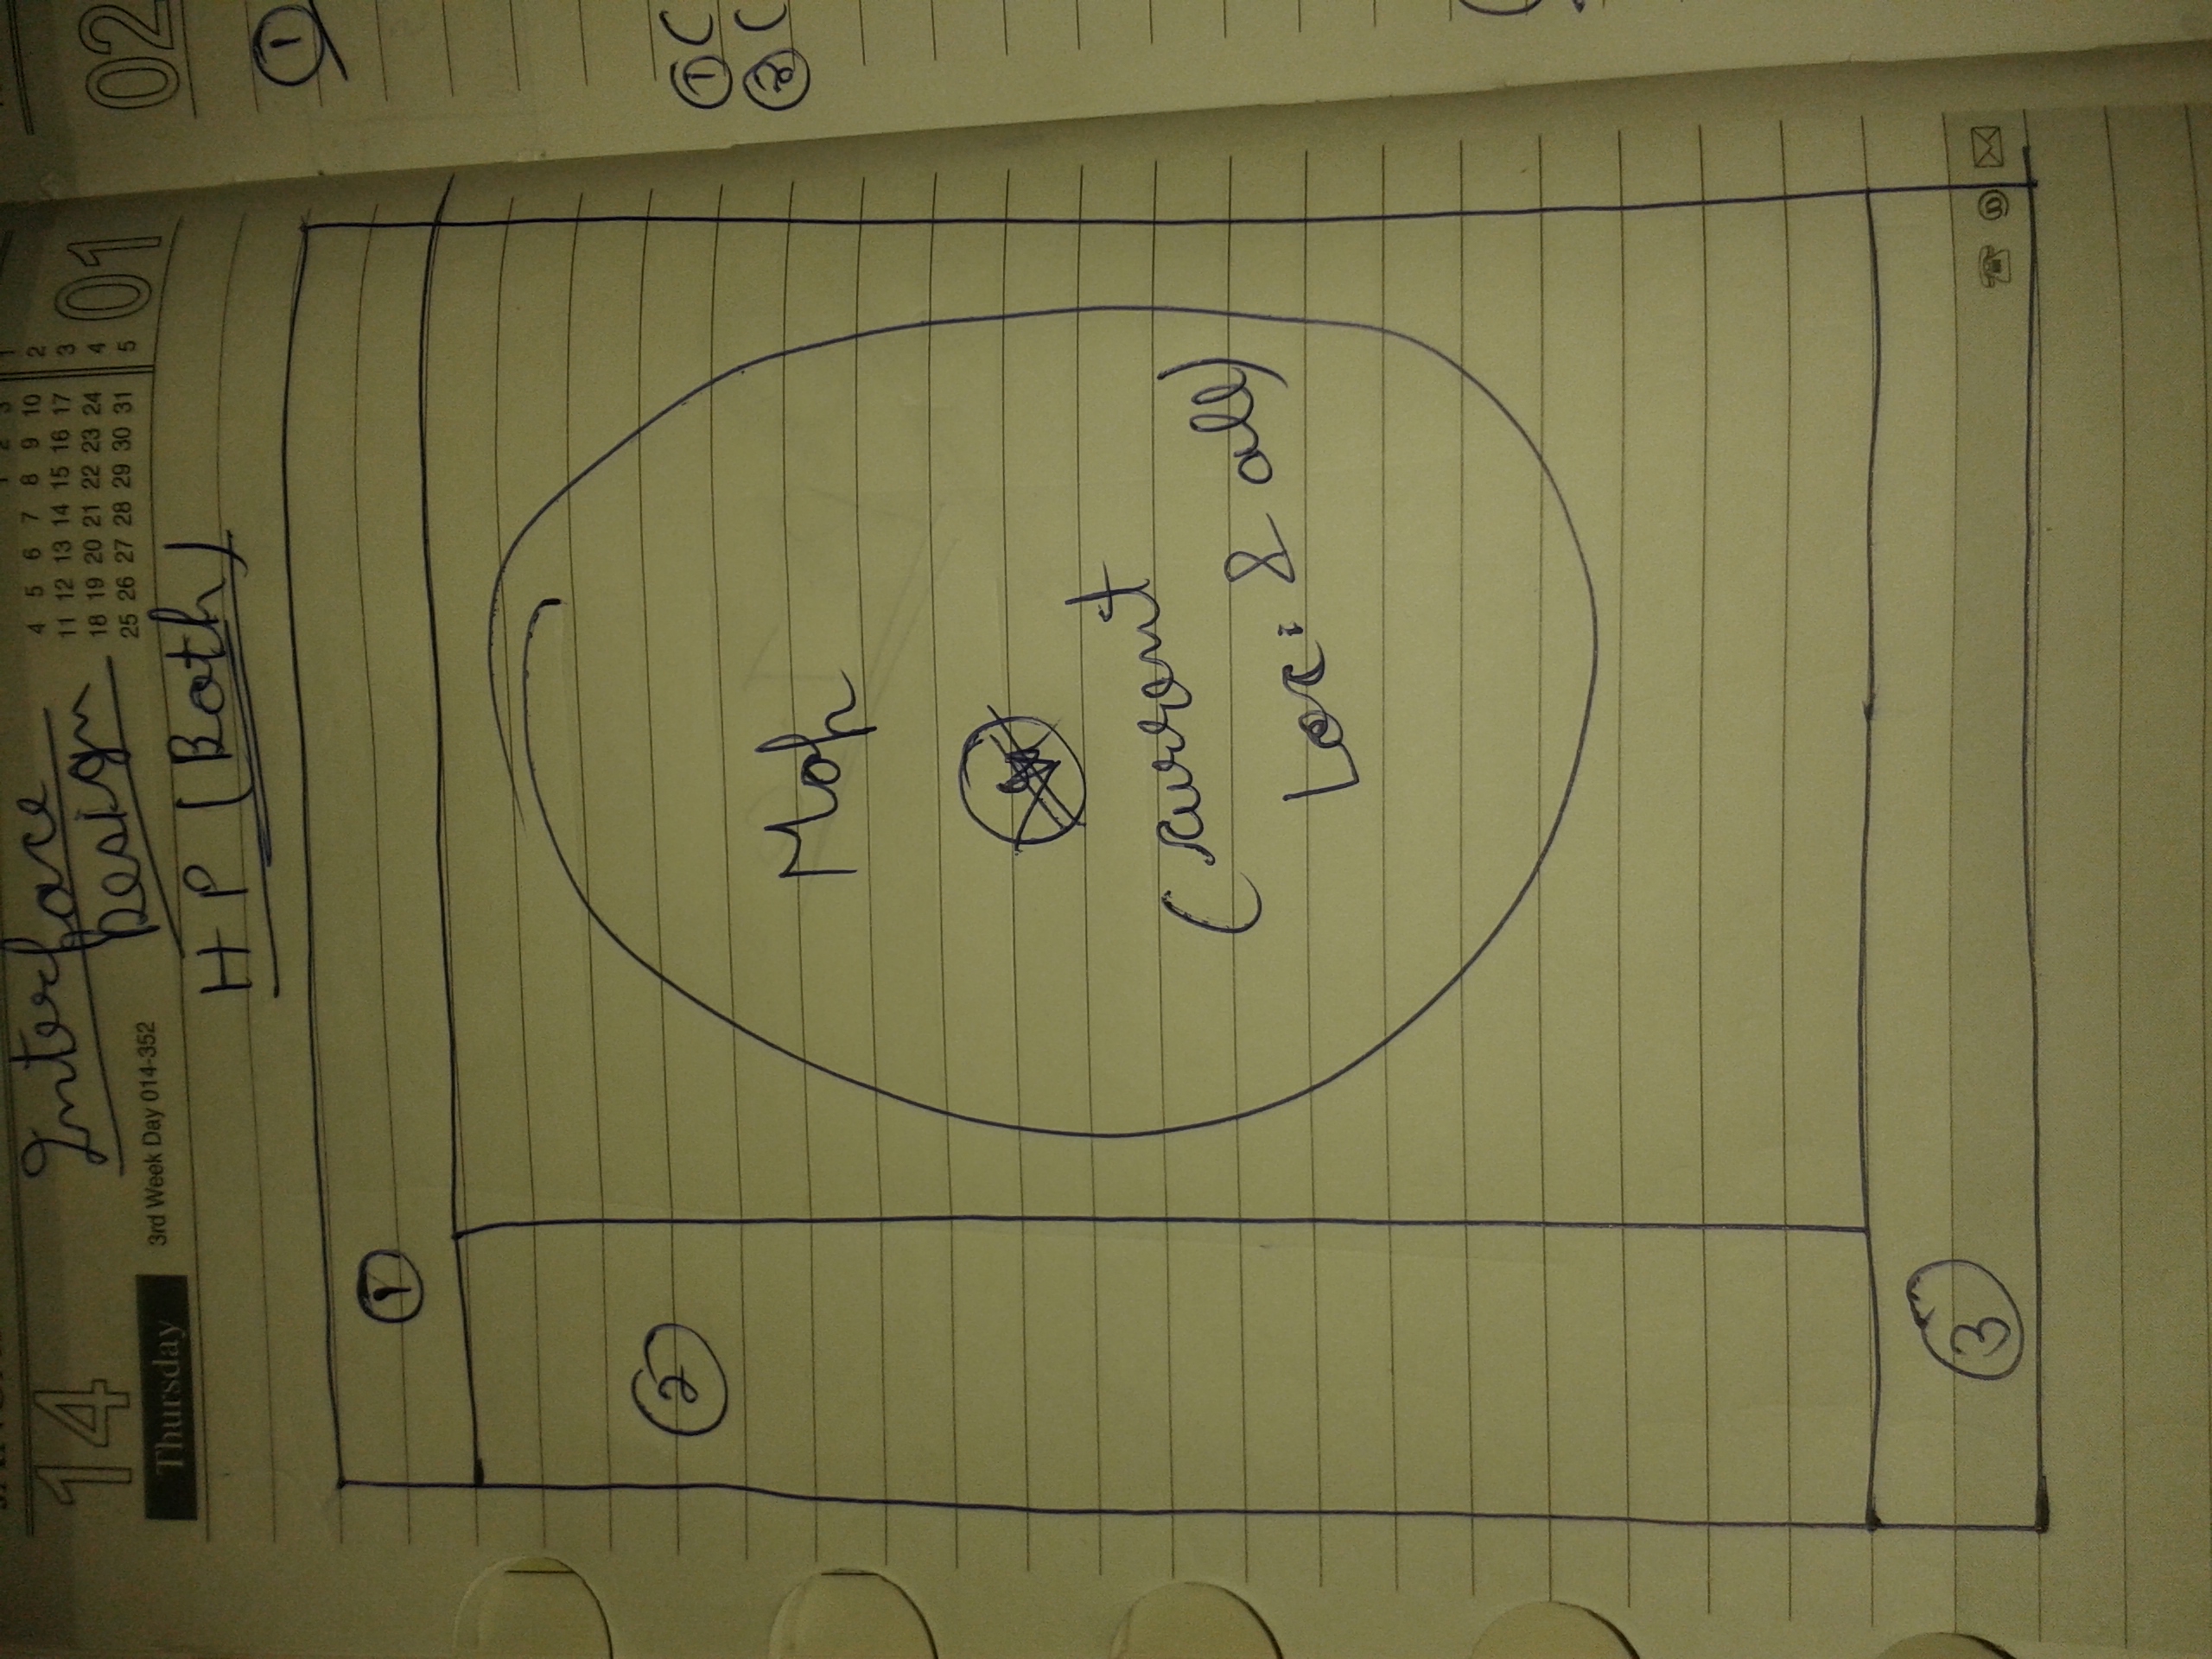 14
Thursday
3rd Week Day 014-352
Interface
Design
1 2 3 1
4 5 6 7 8 9 10 2
11 12 13 14 15 16 17 3
18 19 20 21 22 23 24 4
25 26 27 28 29 30 31 5
01
HP (Both)
1
2
Map
(current
Loc. & all)
3
02
1
1 (
2 (